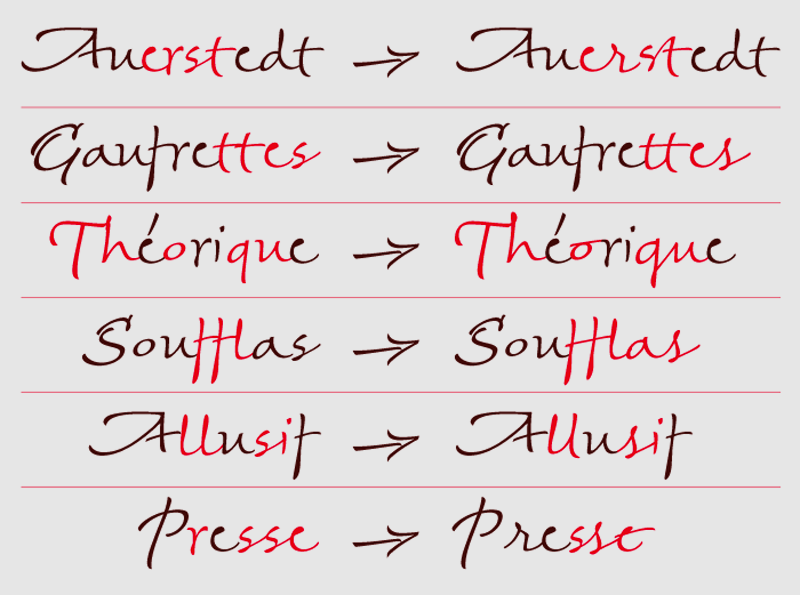 Auerstedt → Auerstedt
Gaufrettes → Gaufrettes
Théorique → Théorique
Soufflas → Soufflas
Allusif → Allusif
Presse → Presse